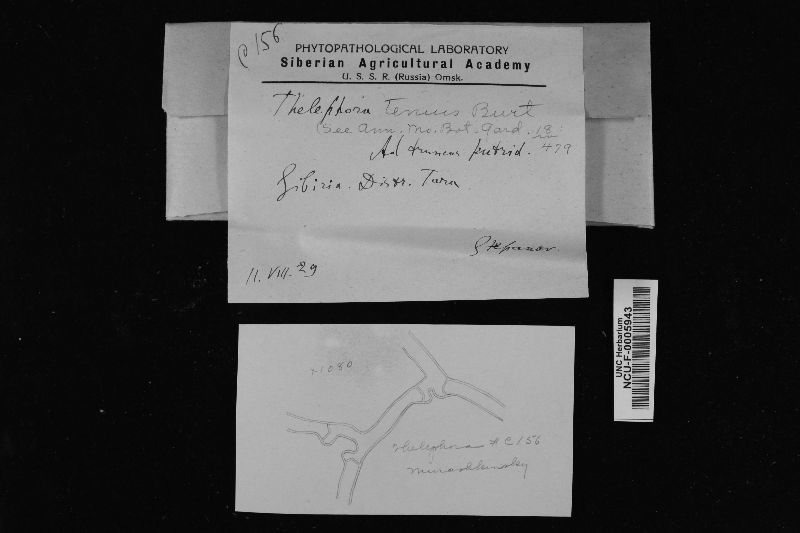 C 156
PHYTOPATHOLOGICAL LABORATORY
Siberian Agricultural Academy
U. S. S. R. (Russia) Omsk.
Thelephora tenuis Burt
(See Ann. Mo. Bot. Gard. 13:
Ad truncos putrid. 479
Sibiria. Distr. Tara
Stepanov.
11. VIII. 29
UNC Herbarium
NCU-F-0005943
x1080
Thelephora # C156
Murashkinsky